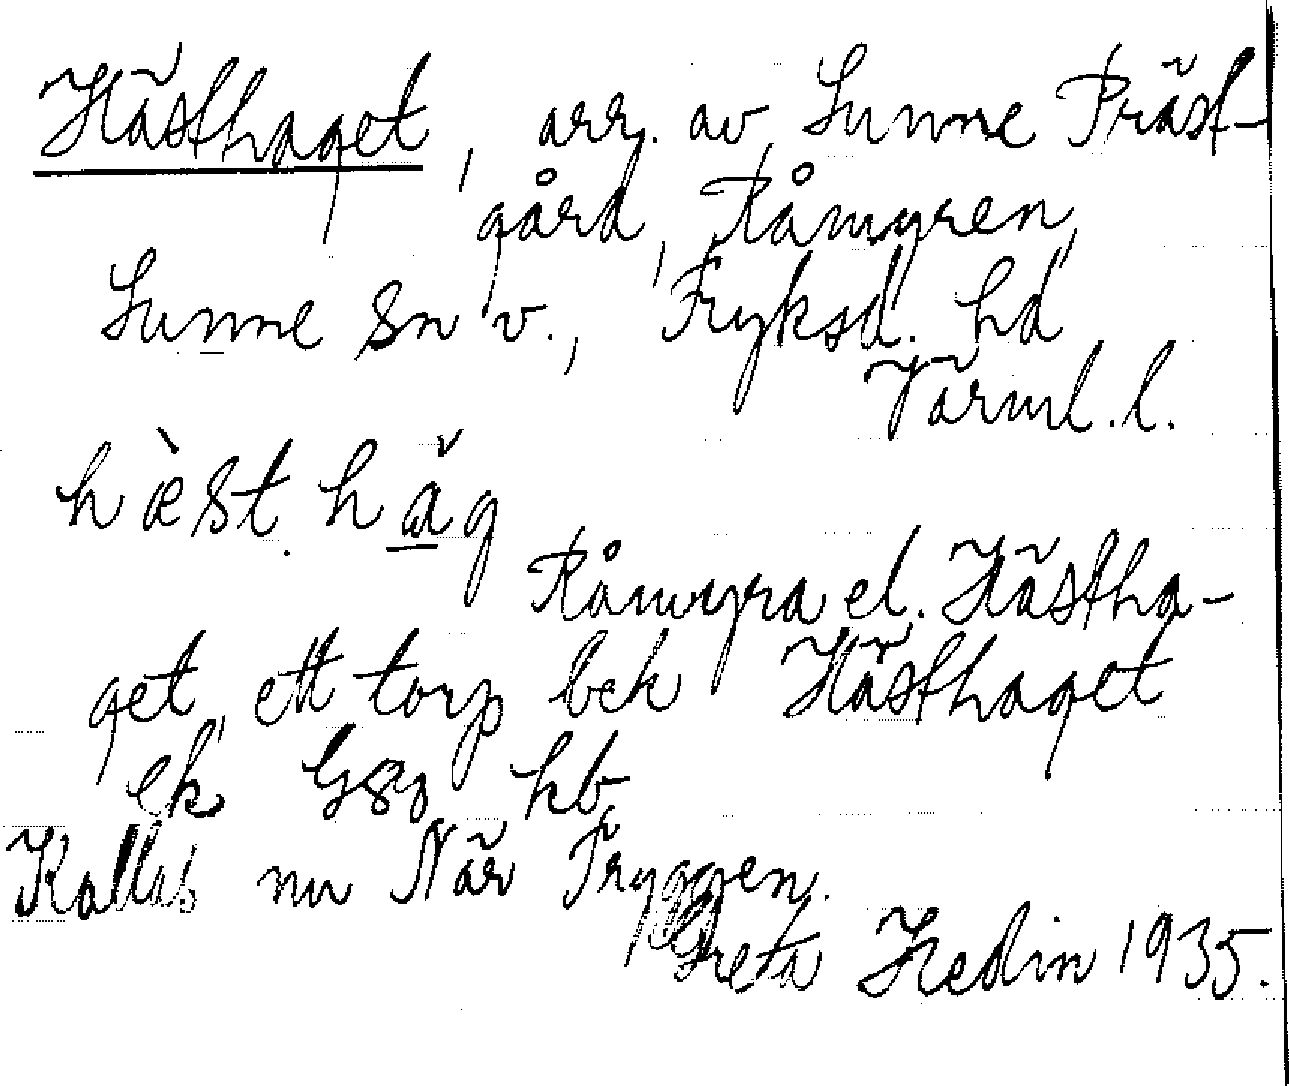 Hästhaget, arr. av Sunne Präst-
gård, Råmyren,
Sunne sn v., Fryksd. hd
Värml. l.
hæ̀st. hăg
Råmyra el. Hästha-
get, ett torp bek Hästhaget
ek Gsg kb
Kallas nu När Tryggen.
Greta Hedin 1935.